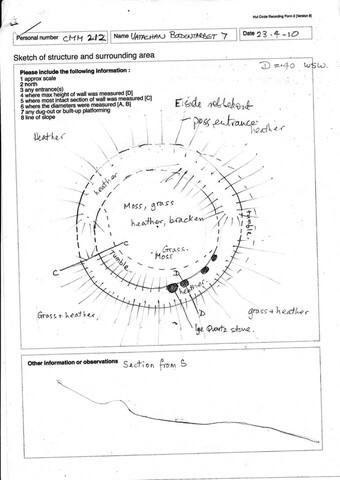 Hut Circle Recording Form 2 (Version 8)
Personal number CMM 212
Name UATACHAN BODENTARBET 7
Date 23-4-10
Sketch of structure and surrounding area
D = .40 WSW.
Please include the following information :
1 approx scale
2 north
3 any entrance(s)
4 where max height of wall was measured [D]
5 where most intact section of wall was measured [C]
6 where the diameters were measured [A, B]
7 any dug-out or built-up platforming
8 line of slope
E side
poss. entrance
heather
Heather
heather
Moss, grass
heather, bracken
tumble
Grass.
Moss
C
C
Tumble
D
heather
D
Grass + heather
grass + heather
lge Quartz stone.
Other information or observations
Section from S